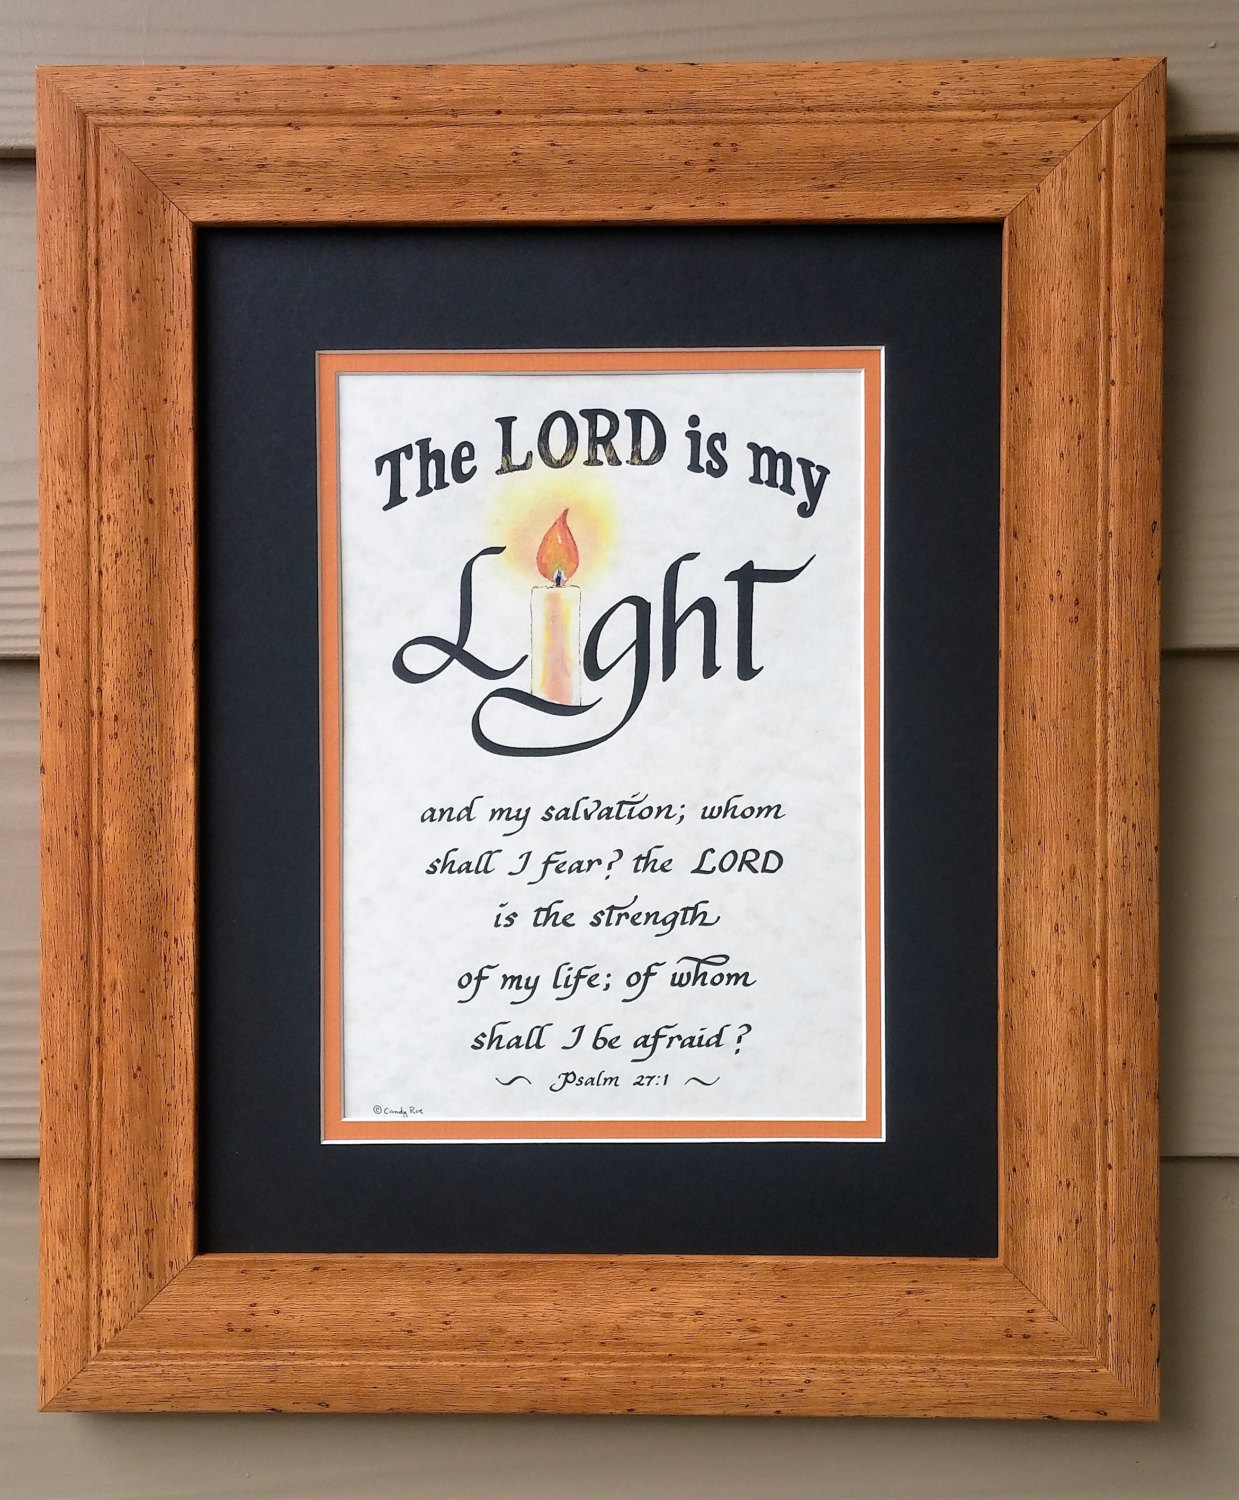 The LORD is my
Light
and my salvation; whom
shall I fear? the LORD
is the strength
of my life; of whom
shall I be afraid?
~ Psalm 27:1 ~
© Candy Roe